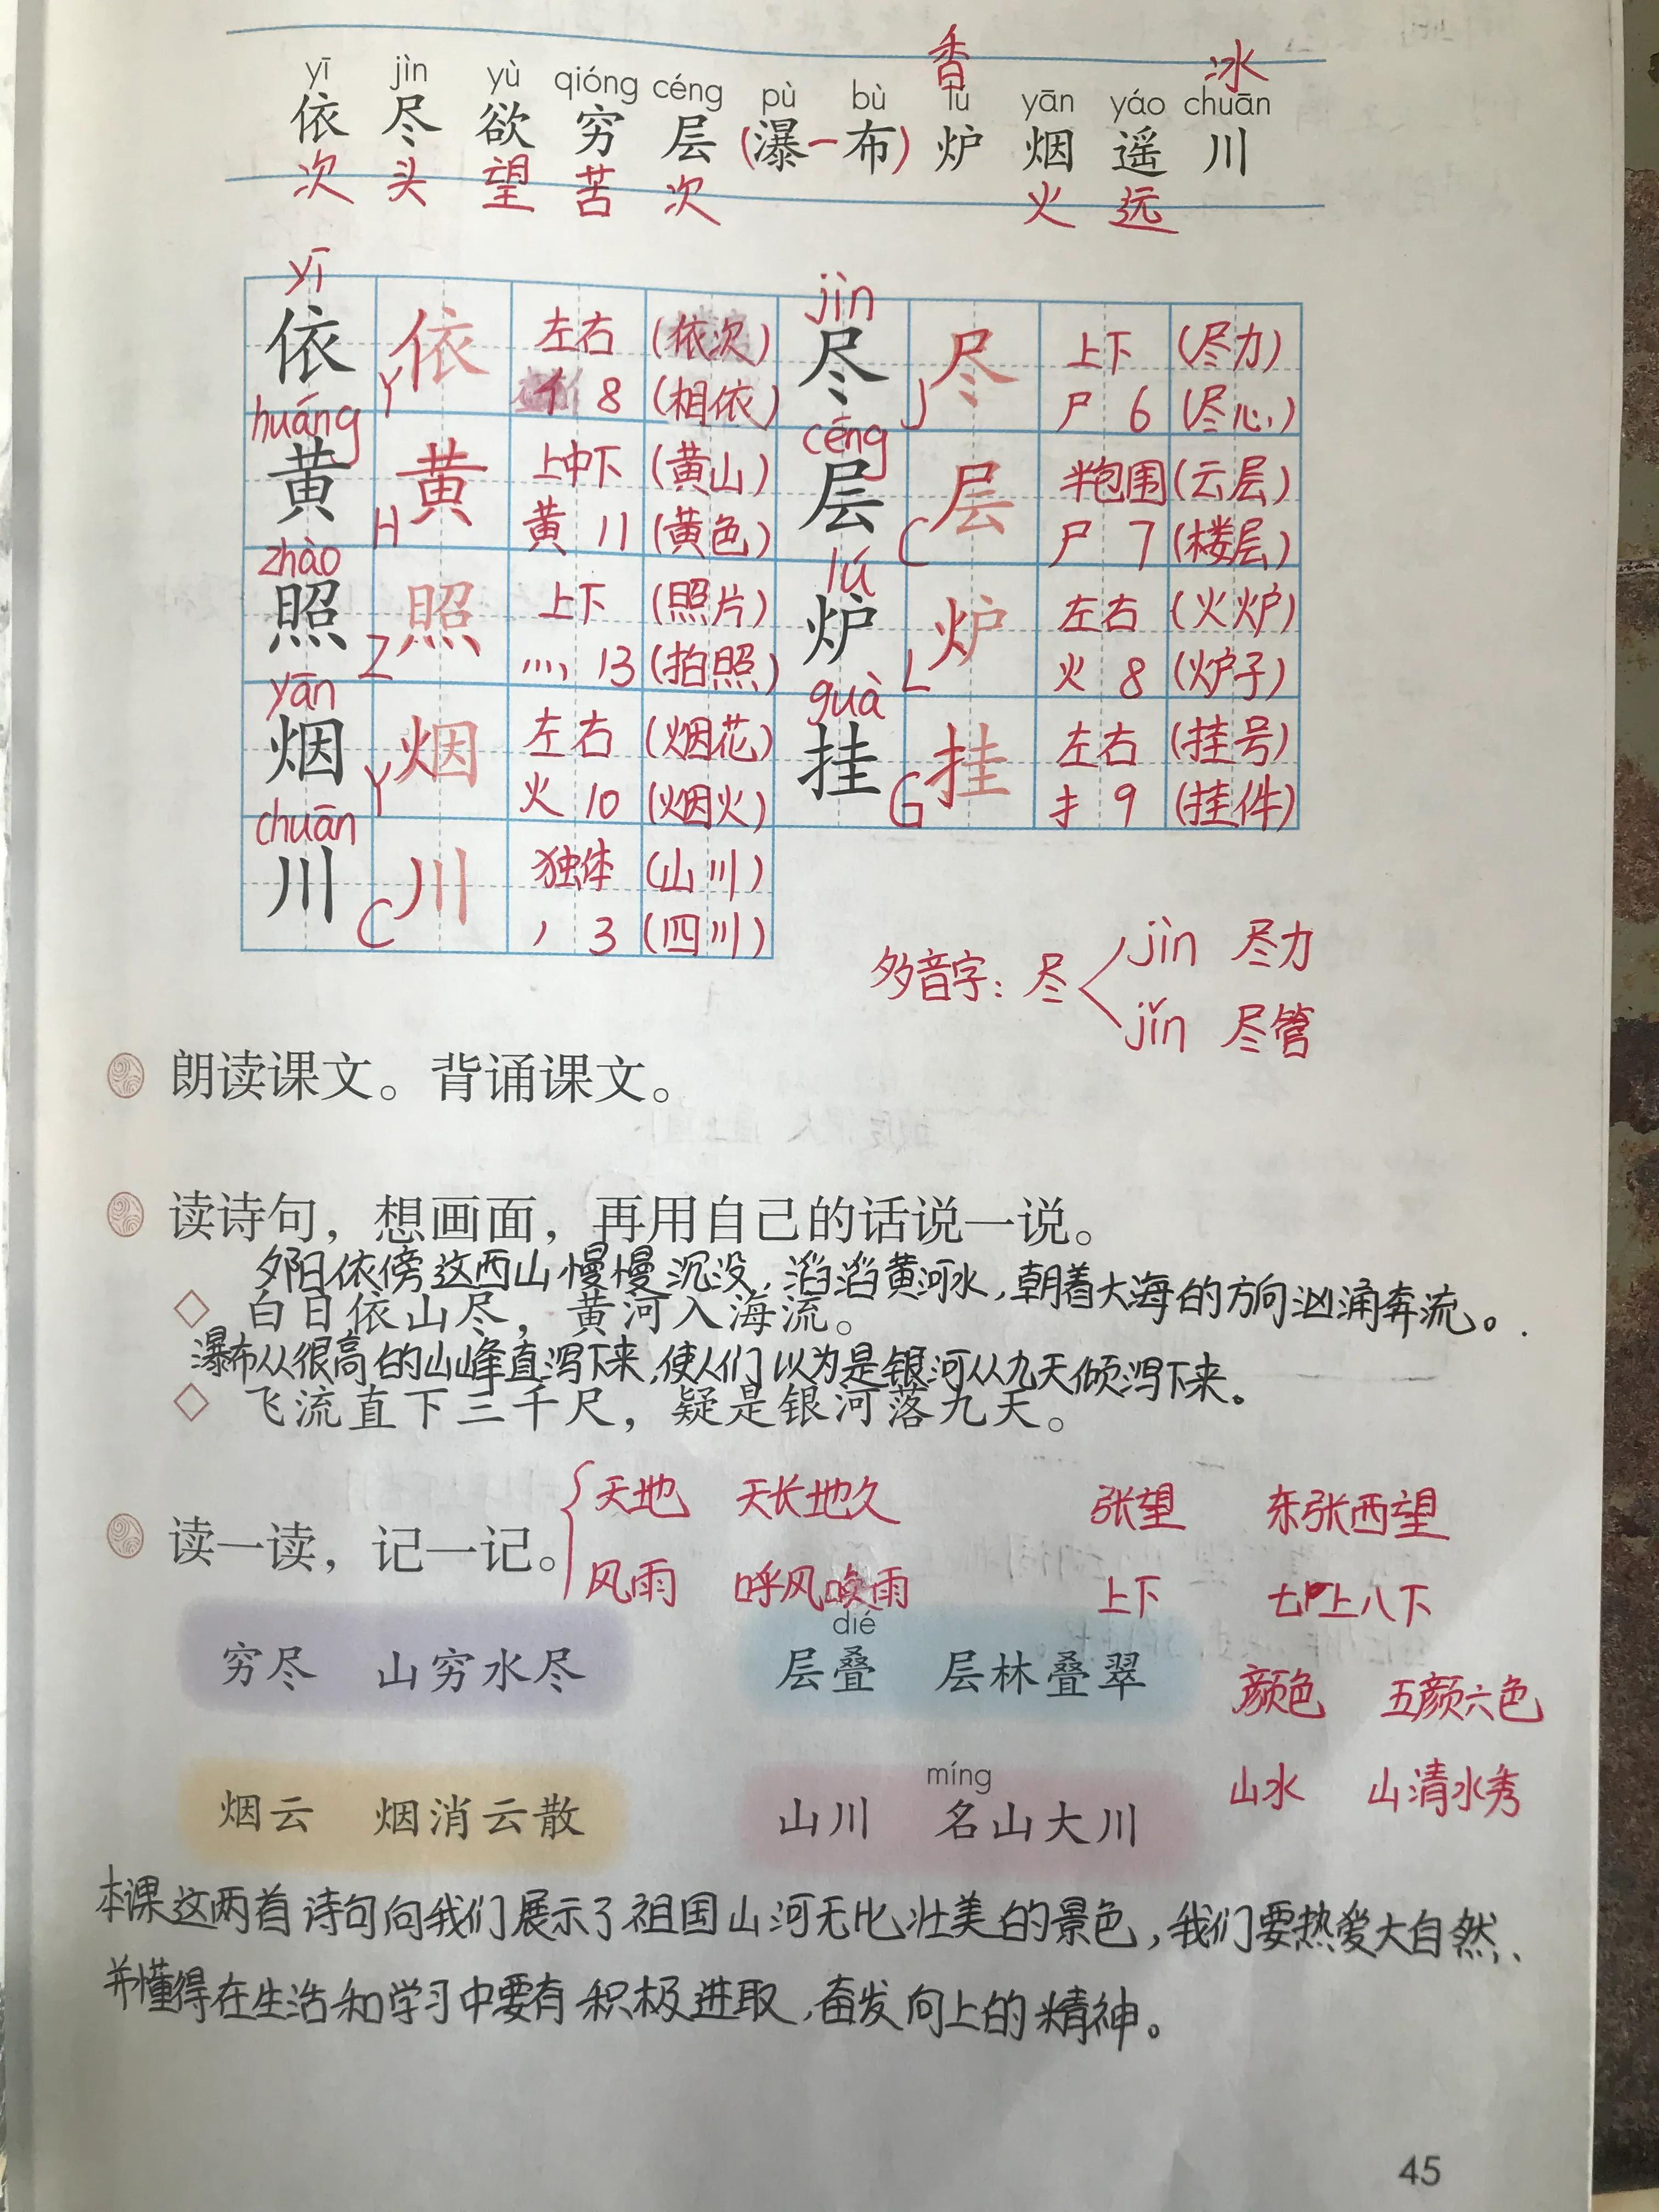 香 冰
yī jìn yù qióng céng pù bù lú yān yáo chuān
依 尽 欲 穷 层 (瀑一布) 炉 烟 遥 川
次 头 望 苦 次 火 远
yī jìn
依 依 左右 (依次) 尽 尽 上下 (尽力)
Y 亻 8 (相依) J 尸 6 (尽心)
huáng céng
黄 黄 上中下 (黄山) 层 层 半包围 (云层)
H 黄 11 (黄色) C 尸 7 (楼层)
zhào lú
照 照 上下 (照片) 炉 炉 左右 (火炉)
Z 灬 13 (拍照) L 火 8 (炉子)
yān guà
烟 烟 左右 (烟花) 挂 挂 左右 (挂号)
Y 火 10 (烟火) G 扌 9 (挂件)
chuān
川 川 独体 (山川)
C 丿 3 (四川)
多音字：尽 jìn 尽力
jǐn 尽管
朗读课文。背诵课文。
读诗句，想画面，再用自己的话说一说。
夕阳依傍这西山慢慢沉没，滔滔黄河水，朝着大海的方向汹涌奔流。
◇ 白日依山尽，黄河入海流。
瀑布从很高的山峰直泻下来，使人们以为是银河从九天倾泻下来。
◇ 飞流直下三千尺，疑是银河落九天。
天地 天长地久 张望 东张西望
读一读，记一记。
风雨 呼风唤雨 上下 七上八下
dié
穷尽 山穷水尽 层叠 层林叠翠
颜色 五颜六色
míng
山水 山清水秀
烟云 烟消云散 山川 名山大川
本课这两首诗句向我们展示了祖国山河无比壮美的景色，我们要热爱大自然，
并懂得在生活和学习中要有积极进取，奋发向上的精神。
45